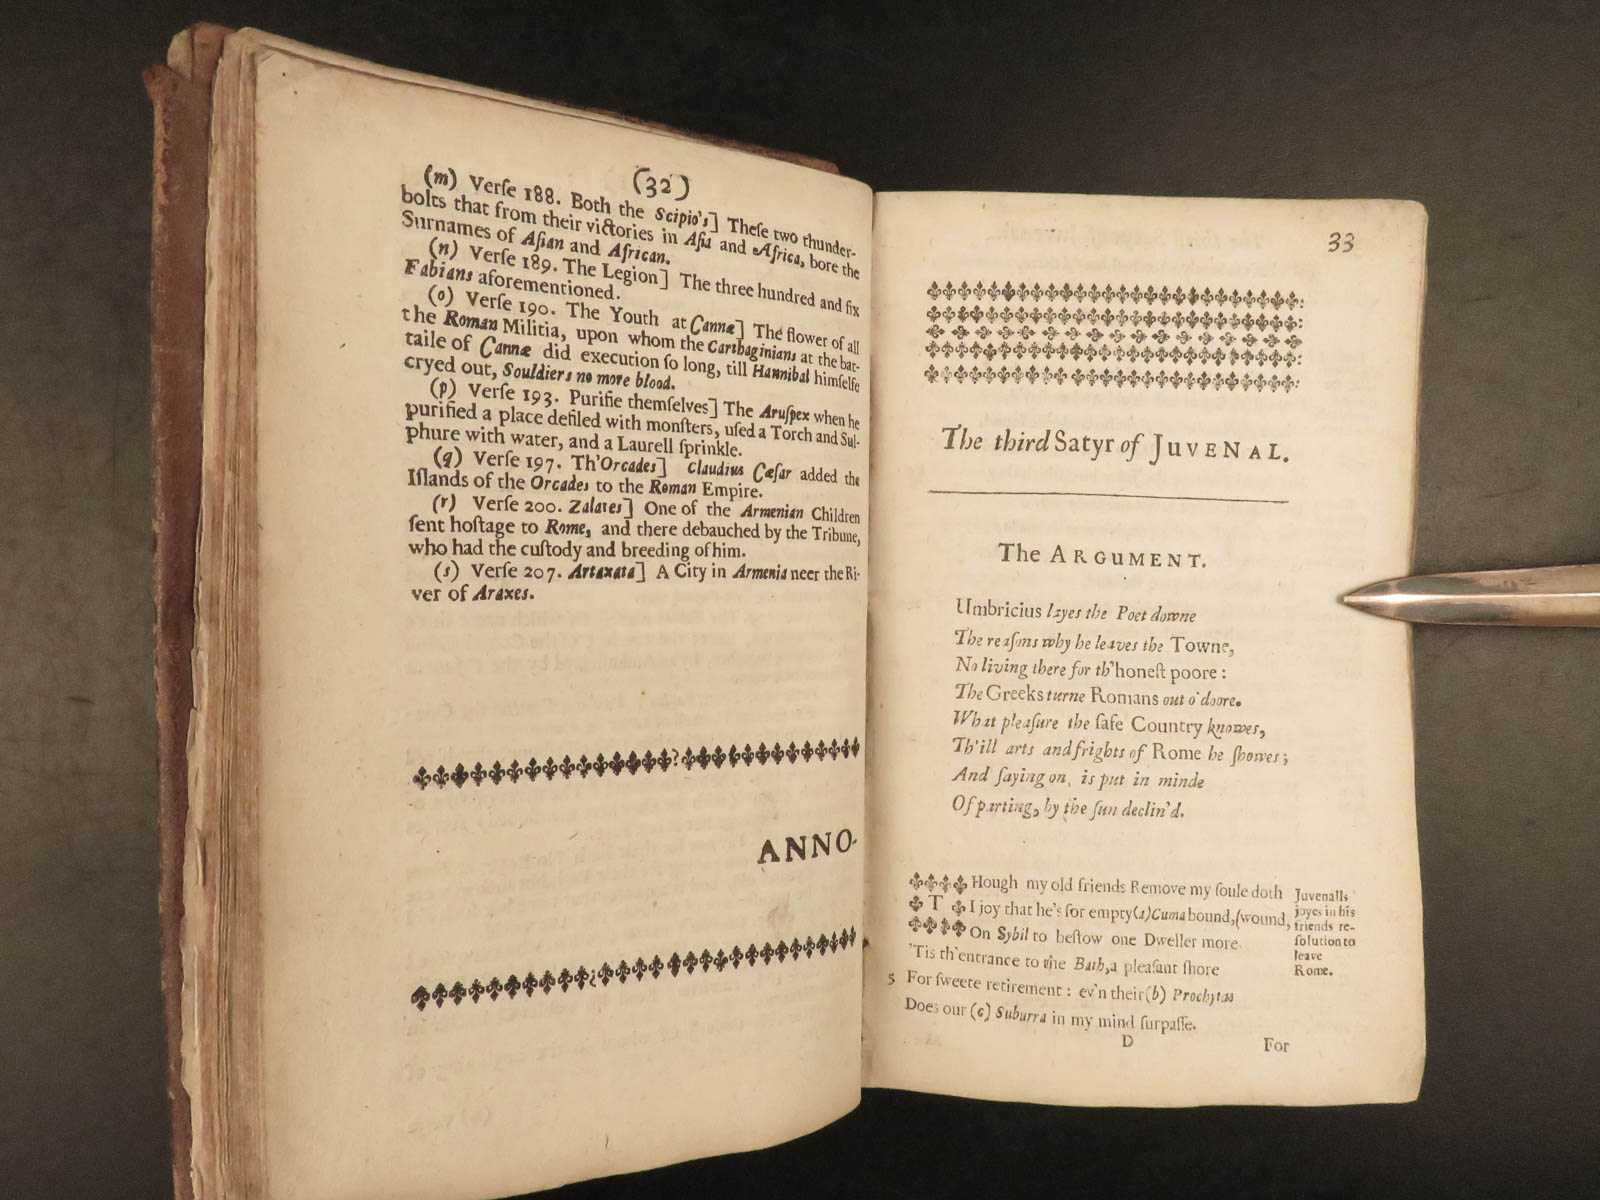 (32)
(m) Verſe 188. Both the Scipio's] Theſe two thunder-
bolts that from their victories in Aſia and Africa, bore the
Surnames of Aſian and African.
(n) Verſe 189. The Legion] The three hundred and ſix
Fabians aforementioned.
(o) Verſe 190. The Youth at Cannæ] The flower of all
the Roman Militia, upon whom the Carthaginians at the bat-
taile of Cannæ did execution ſo long, till Hannibal himſelfe
cryed out, Souldiers no more blood.
(p) Verſe 193. Purifie themſelves] The Aruſpex when he
purified a place defiled with monſters, uſed a Torch and Sul-
phure with water, and a Laurell ſprinkle.
(q) Verſe 197. Th'Orcades] Claudius Cæſar added the
Iſlands of the Orcades to the Roman Empire.
(r) Verſe 200. Zalates] One of the Armenian Children
ſent hoſtage to Rome, and there debauched by the Tribune,
who had the cuſtody and breeding of him.
(s) Verſe 207. Artaxata] A City in Armenia neer the Ri-
ver of Araxes.
ANNO-
33
The third Satyr of JUVENAL.
The ARGUMENT.
Umbricius layes the Poet downe
The reaſons why he leaves the Towne,
No living there for th'honeſt poore:
The Greeks turne Romans out o'doore.
What pleaſure the ſafe Country knowes,
Th'ill arts and frights of Rome he ſhowes;
And ſaying on, is put in minde
Of parting, by the ſun declin'd.
THough my old friends Remove my ſoule doth
I joy that he's for empty (a) Cuma bound, (wound,
On Sybil to beſtow one Dweller more.
'Tis th'entrance to the Bath, a pleaſant ſhore
5 For ſweete retirement: ev'n their (b) Prochytas
Does our (c) Suburra in my mind ſurpaſſe.
Juvenalls
joyes in his
friends re-
ſolution to
leave
Rome.
D For